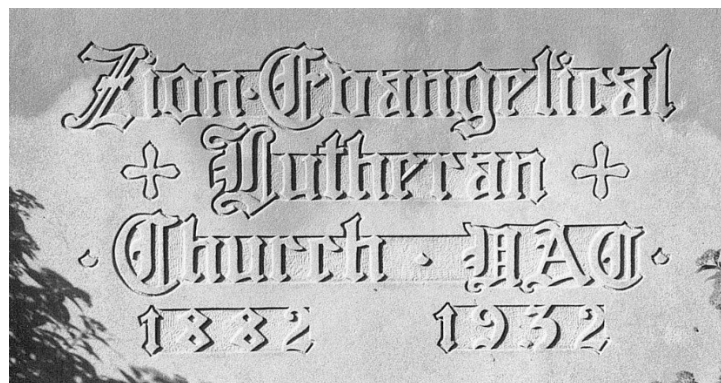 Zion·Evangelical
Lutheran
· Church · UAC ·
1882 1932